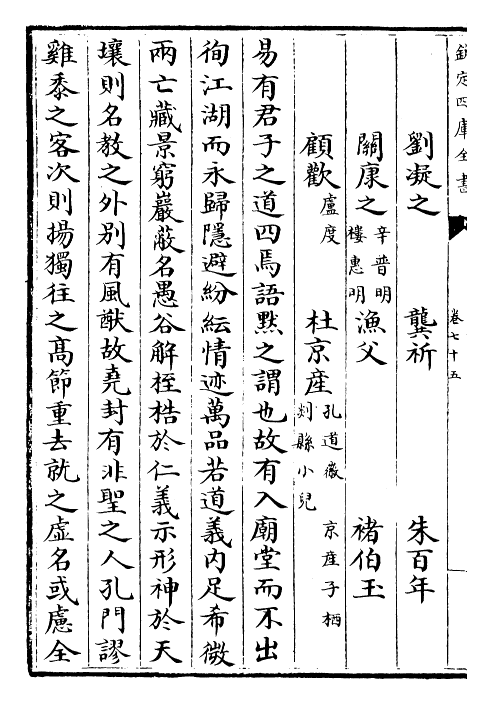 欽定四庫全書
卷七十五
劉凝之　龔祈　朱百年
關康之 辛普明 樓惠明 漁父　褚伯玉
顧歡 盧度　杜京産 孔道徽 京産子栖 剡縣小兒
易有君子之道四焉語默之謂也故有入廟堂而不出
徇江湖而永歸隱避紛紜情迹萬品若道義内足希微
兩亡藏景窮巖蔽名愚谷解桎梏於仁義示形神於天
壤則名教之外别有風猷故堯封有非聖之人孔門謬
雞黍之客次則揚獨往之髙節重去就之虚名或慮全